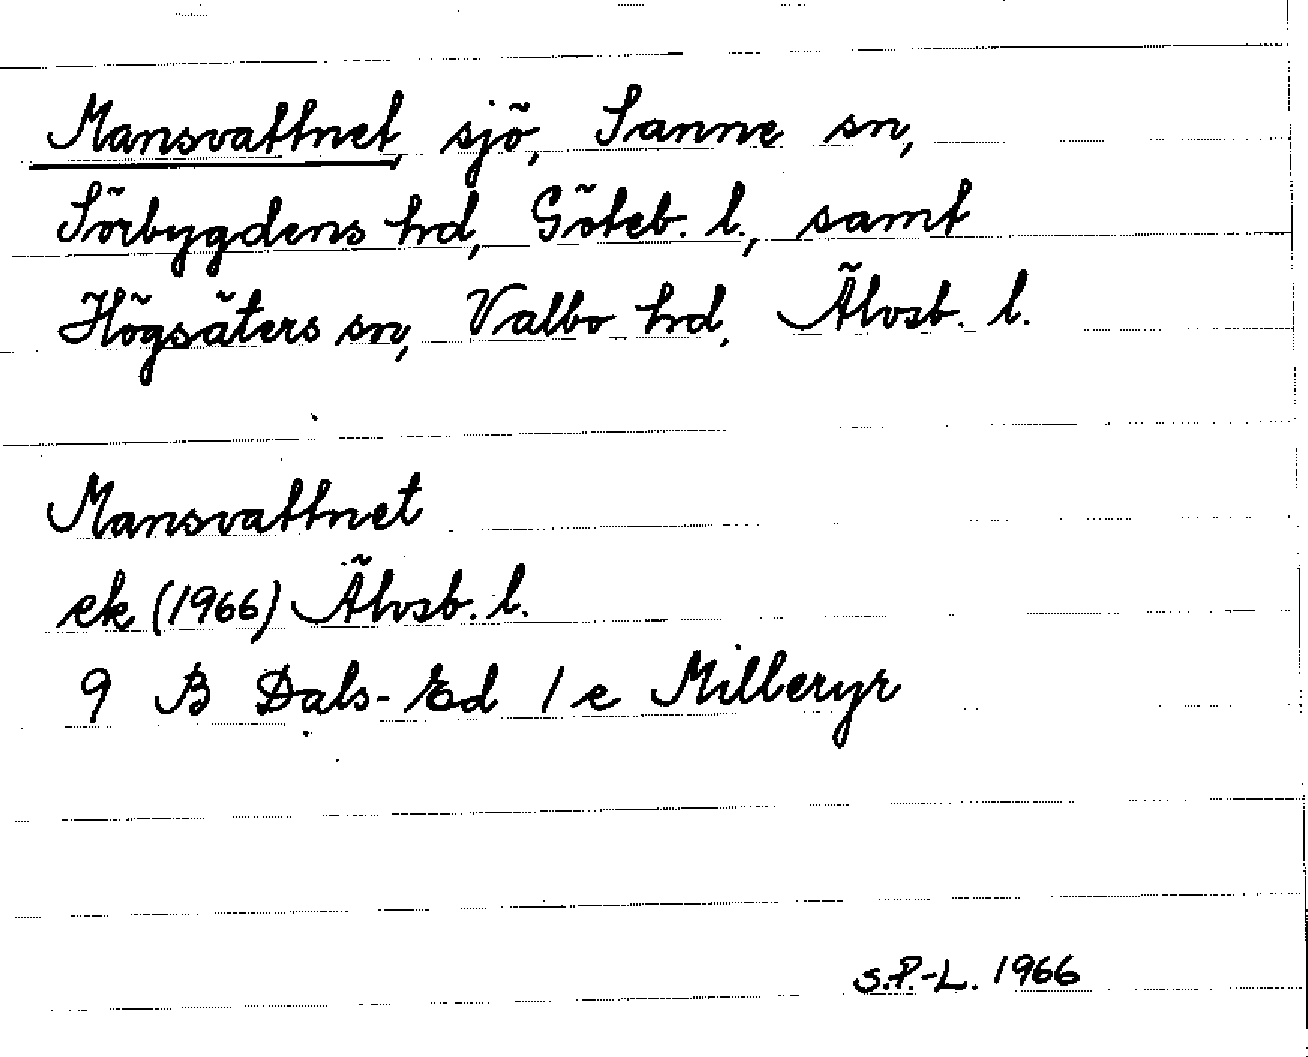 Mansvattnet, sjö, Sanne sn,
Sörbygdens hd, Göteb. l., samt
Högsäters sn, Valbo hd, Älvsb. l.
Mansvattnet
ek (1966) Älvsb. l.
9 B Dals-Ed 1 e Milleryr
S.P.-L. 1966